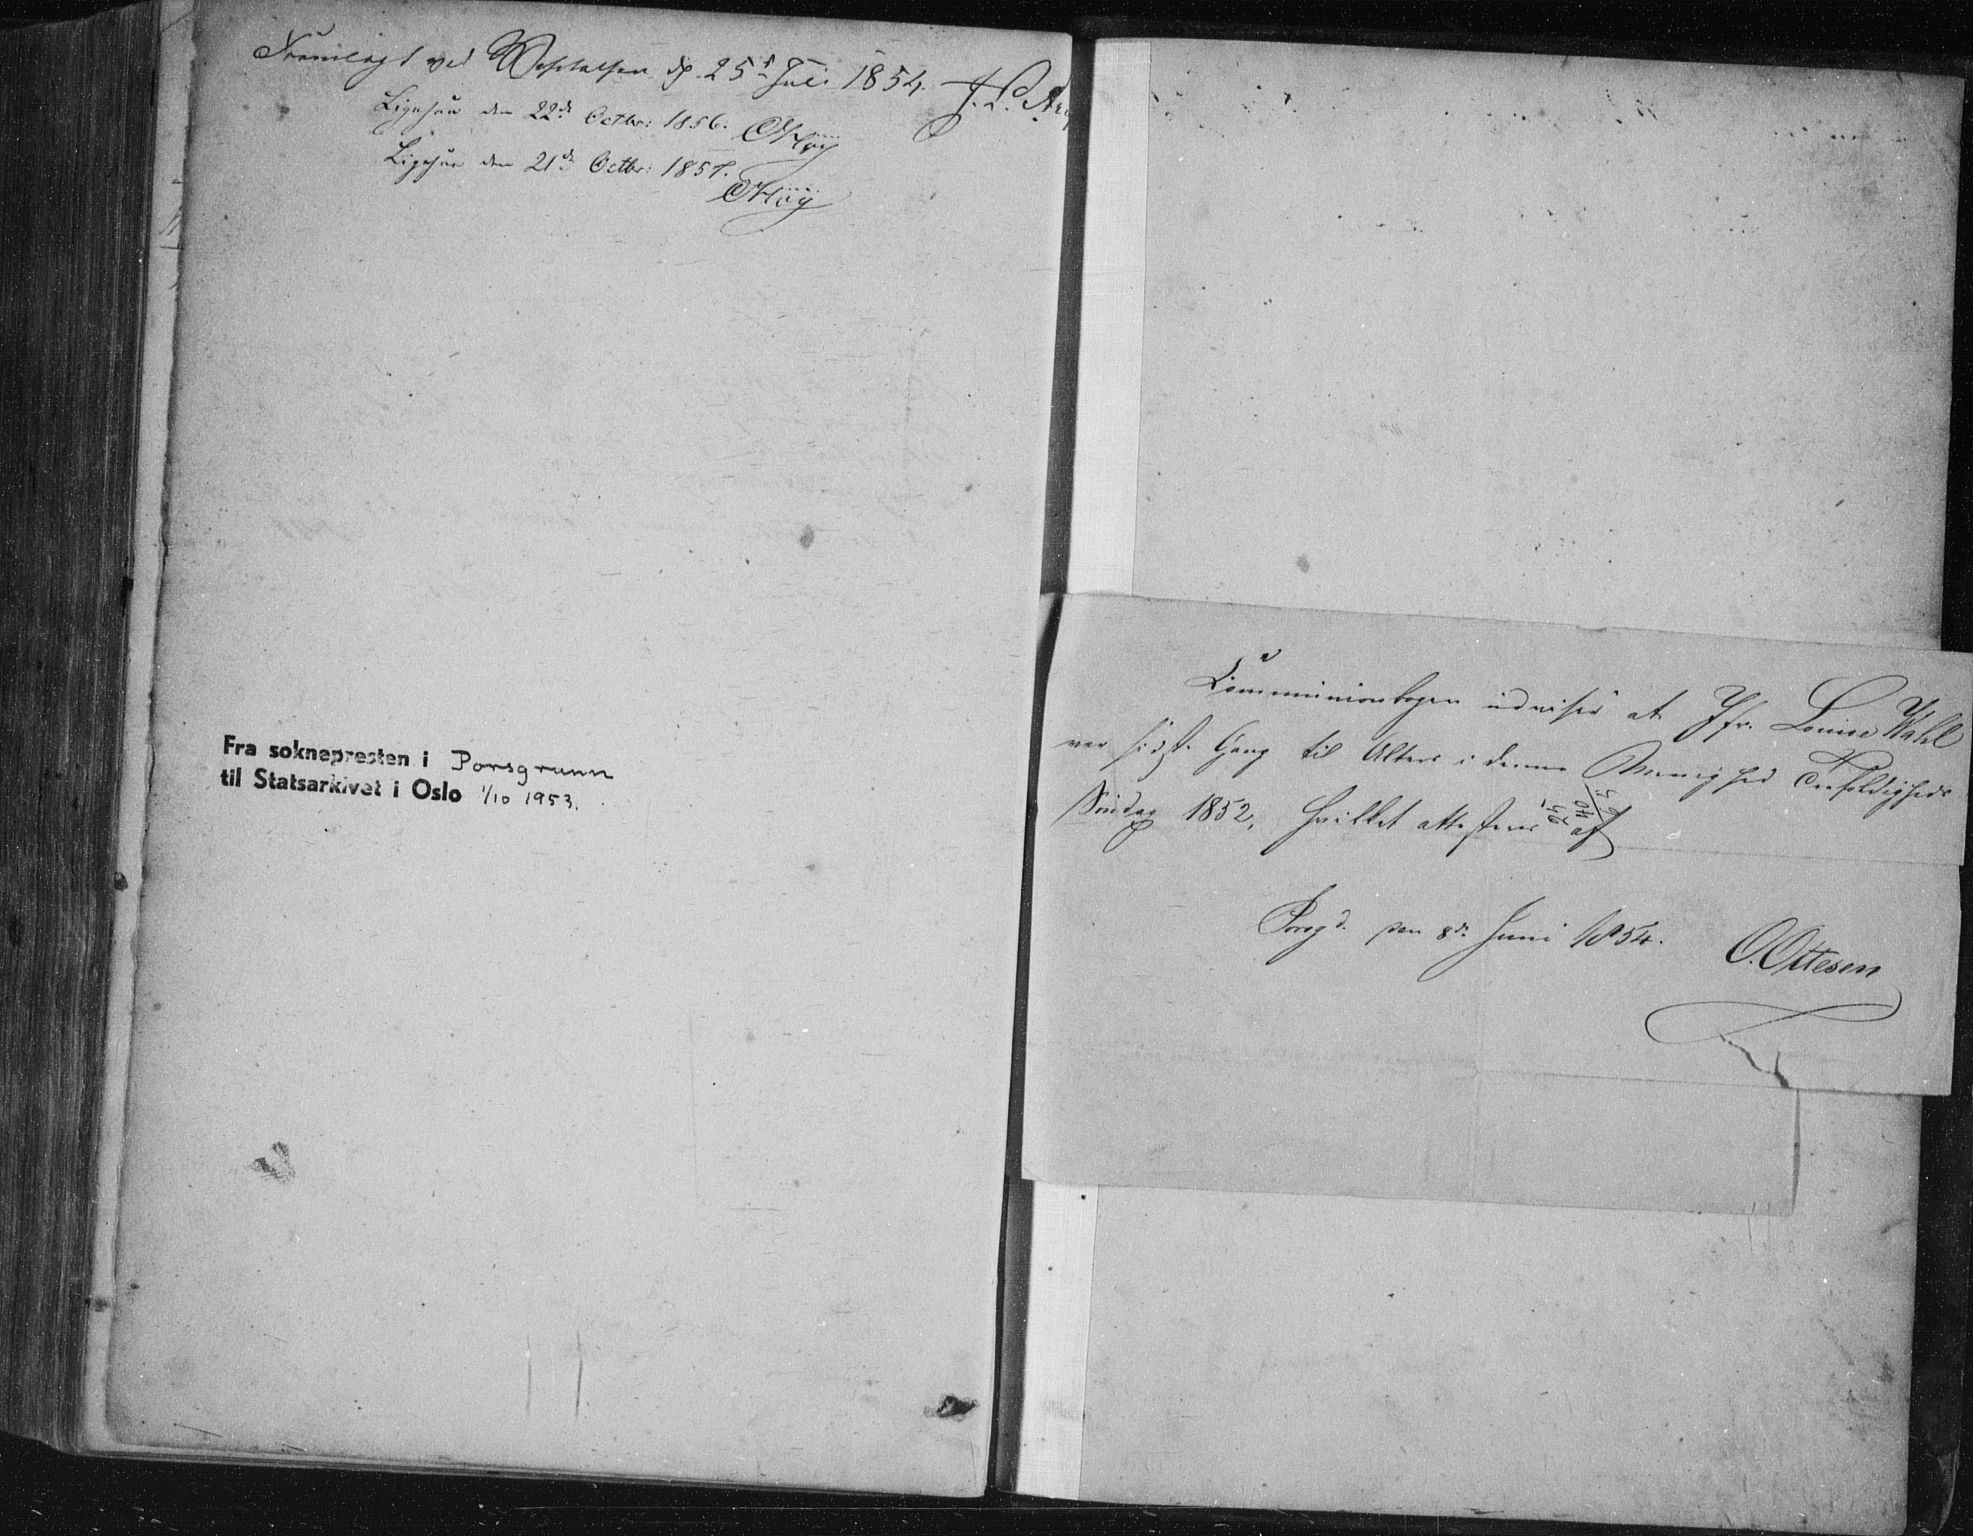 Fremlagt ved Visitatsen d. 25de Juli 1854.
Ligesaa den 22de Octbr: 1856.
Ligesaa den 21de Octbr: 1857.
Fra soknepresten i Porsgrunn
til Statsarkivet i Oslo 1/10 1953.
Communionbogen udviser at Jfr. Louise Wahl
var sidste Gang til Alters i denne Menighed Trefoldigheds
Søndag 1852, hvilket attesteres af
Porsgd. den 8de Juni 1854. O. Ottesen